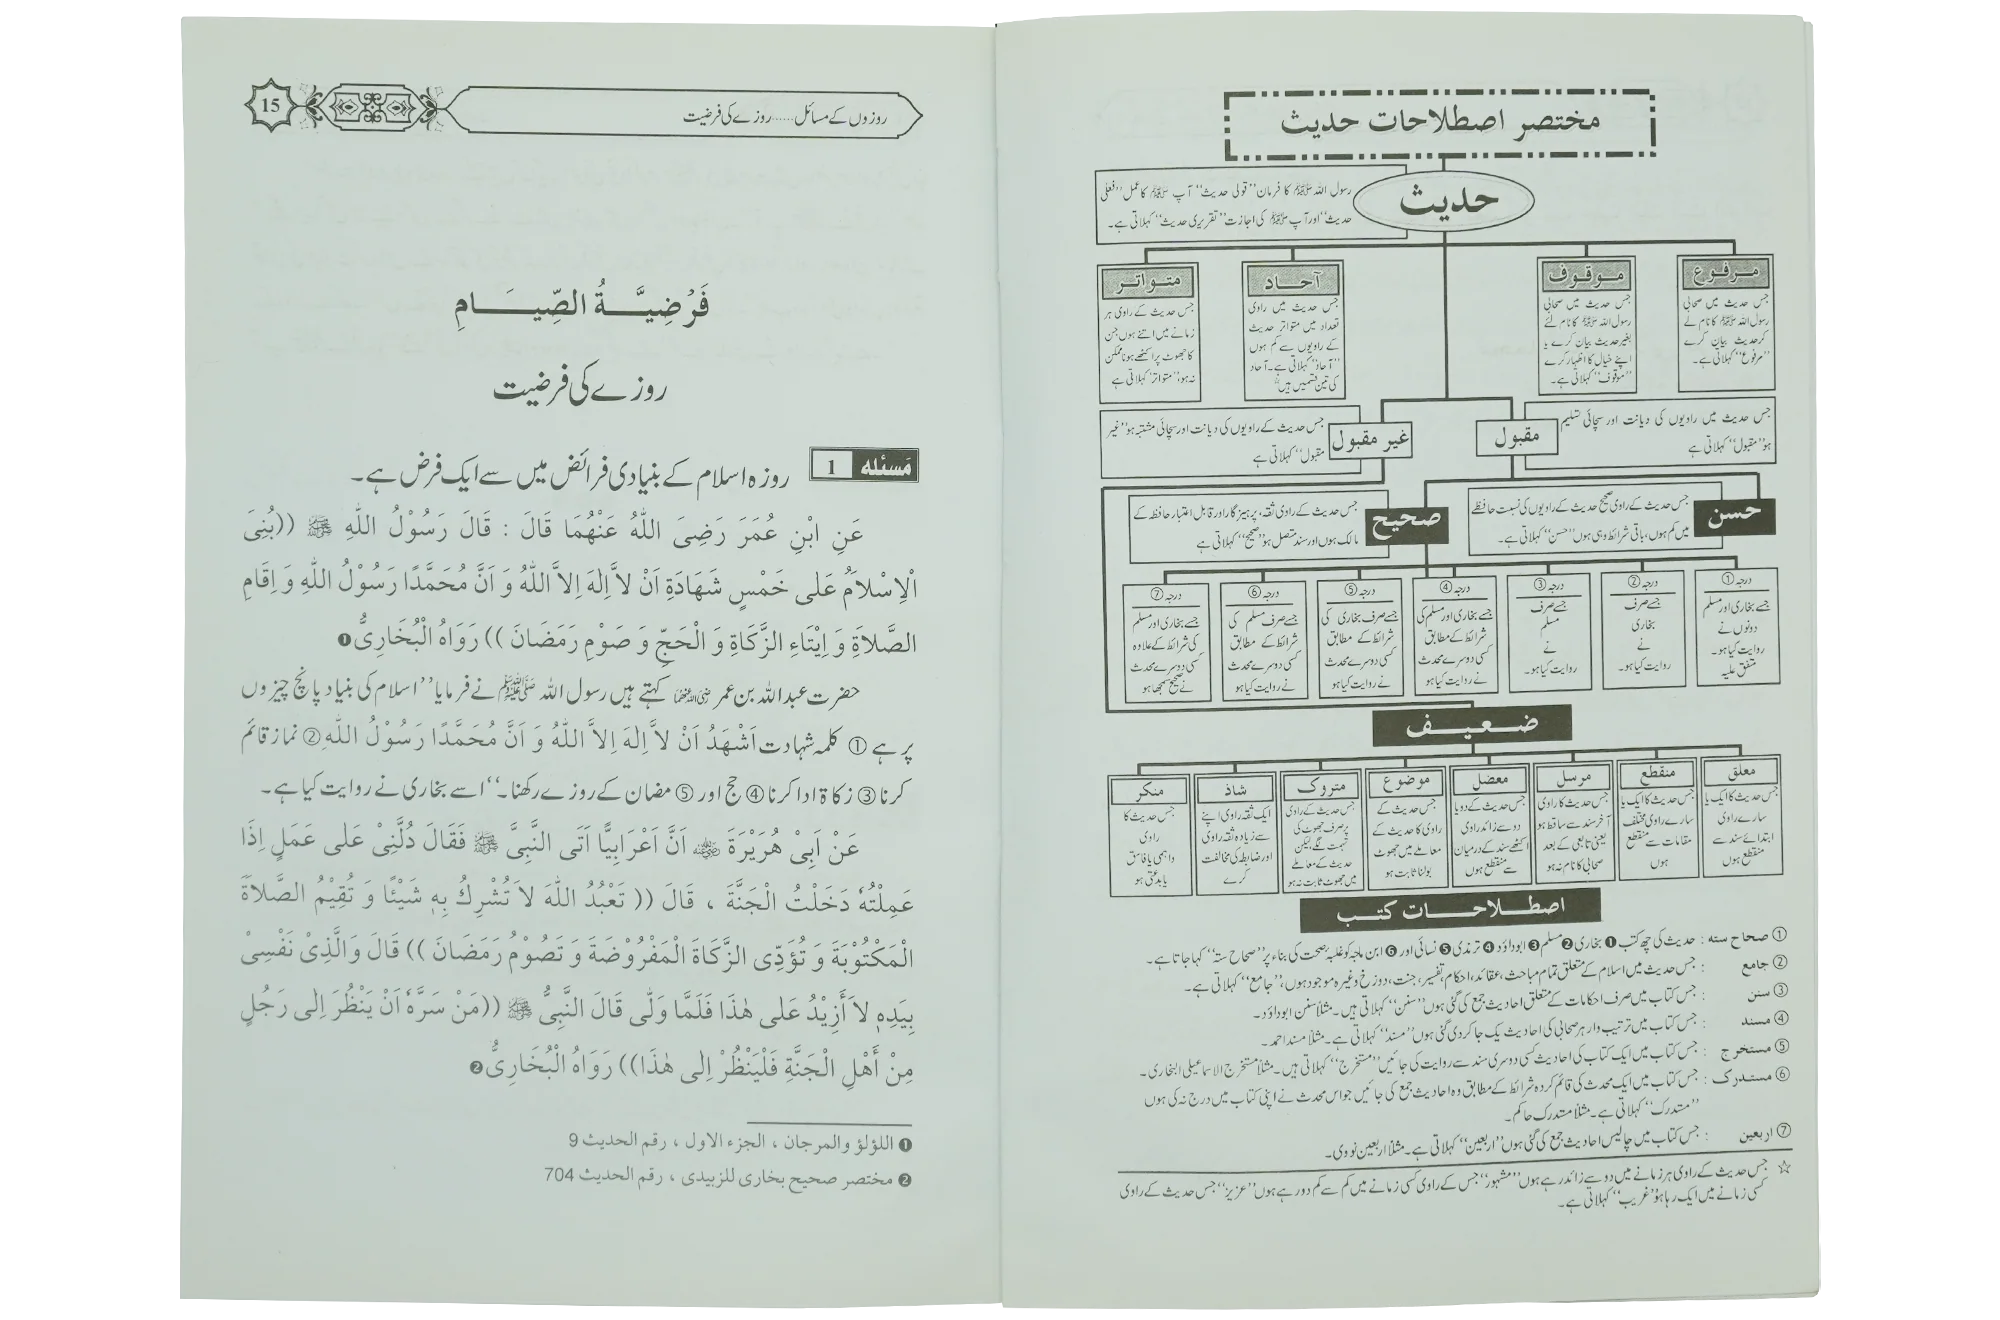 مختصر اصطلاحات حدیث
حدیث
رسول اللہ ﷺ کا فرمان ’’قولی حدیث‘‘ آپ ﷺ کا عمل ’’فعلی
حدیث‘‘ اور آپ ﷺ کی اجازت ’’تقریری حدیث‘‘ کہلاتی ہے۔
مرفوع
جس حدیث میں صحابی
رسول اللہ ﷺ کا نام لے
کر حدیث بیان کرے
’’مرفوع‘‘ کہلاتی ہے۔
موقوف
جس حدیث میں صحابی
رسول اللہ ﷺ کا نام لئے
بغیر حدیث بیان کرے یا
اپنے خیال کا اظہار کرے
’’موقوف‘‘ کہلاتی ہے۔
آحاد
جس حدیث میں راوی
تعداد میں متواتر حدیث
کے راویوں سے کم ہوں
’’آحاد‘‘ کہلاتی ہے۔ آحاد
کی تین قسمیں ہیں
متواتر
جس حدیث کے راوی ہر
زمانے میں اتنے ہوں جن
کا جھوٹ پر اکٹھے ہونا ممکن
نہ ہو، ’’متواتر‘‘ کہلاتی ہے
مقبول
جس حدیث میں راویوں کی دیانت اور سچائی تسلیم
ہو ’’مقبول‘‘ کہلاتی ہے
غیر مقبول
جس حدیث کے راویوں کی دیانت اور سچائی مشتبہ ہو ’’غیر
مقبول‘‘ کہلاتی ہے
حسن
جس حدیث کے راوی صحیح حدیث کے راویوں کی نسبت حافظے
میں کم ہوں، باقی شرائط وہی ہوں ’’حسن‘‘ کہلاتی ہے۔
صحیح
جس حدیث کے راوی ثقہ، پرہیزگار اور قابل اعتبار حافظہ کے
مالک ہوں اور سند متصل ہو ’’صحیح‘‘ کہلاتی ہے
درجہ ①
جسے بخاری اور مسلم
دونوں نے
روایت کیا ہو۔
متفق علیہ
درجہ ②
جسے صرف
بخاری
نے
روایت کیا ہو۔
درجہ ③
جسے صرف
مسلم
نے
روایت کیا ہو۔
درجہ ④
جسے بخاری اور مسلم کی
شرائط کے مطابق
کسی دوسرے محدث
نے روایت کیا ہو
درجہ ⑤
جسے صرف بخاری کی
شرائط کے مطابق
کسی دوسرے محدث
نے روایت کیا ہو
درجہ ⑥
جسے صرف مسلم کی
شرائط کے مطابق
کسی دوسرے محدث
نے روایت کیا ہو
درجہ ⑦
جسے بخاری اور مسلم
کی شرائط کے علاوہ
کسی دوسرے محدث
نے صحیح سمجھا ہو
ضعیف
معلق
جس حدیث کا ایک یا
سارے راوی
ابتدائے سند سے
منقطع ہوں
منقطع
جس حدیث کا ایک یا
سارے راوی مختلف
مقامات سے منقطع
ہوں
مرسل
جس حدیث کا راوی
آخر سند سے ساقط ہو
یعنی تابعی کے بعد
صحابی کا نام نہ ہو
معضل
جس حدیث کے دو یا
دو سے زائد راوی
اکٹھے سند کے درمیان
سے منقطع ہوں
موضوع
جس حدیث کے
راوی کا حدیث کے
معاملے میں جھوٹ
بولنا ثابت ہو
متروک
جس حدیث کے راوی
پر صرف جھوٹ کی
تہمت لگے لیکن
حدیث کے معاملے
میں جھوٹ ثابت نہ ہو
شاذ
ایک ثقہ راوی اپنے
سے زیادہ ثقہ راوی
اور ضابطہ کی مخالفت
کرے
منکر
جس حدیث کا
راوی
واہمی یا فاسق
یا بدعتی ہو
اصطلاحات کتب
① صحاح ستہ : حدیث کی چھ کتب ❶ بخاری ❷ مسلم ❸ ابوداؤد ❹ ترمذی ❺ نسائی اور ❻ ابن ماجہ کو غلبۂ صحت کی بناء پر ’’صحاح ستہ‘‘ کہا جاتا ہے۔
② جامع : جس حدیث میں اسلام کے متعلق تمام مباحث، عقائد، احکام، تفسیر، جنت، دوزخ وغیرہ موجود ہوں، ’’جامع‘‘ کہلاتی ہے۔
③ سنن : جس کتاب میں صرف احکامات کے متعلق احادیث جمع کی گئی ہوں ’’سنن‘‘ کہلاتی ہیں۔ مثلاً سنن ابوداؤد۔
④ مسند : جس کتاب میں ترتیب وار ہر صحابی کی احادیث یک جا کردی گئی ہوں ’’مسند‘‘ کہلاتی ہے۔ مثلاً مسند احمد۔
⑤ مستخرج : جس کتاب میں ایک کتاب کی احادیث کسی دوسری سند سے روایت کی جائیں ’’مستخرج‘‘ کہلاتی ہیں۔ مثلاً مستخرج الاسماعیلی البخاری۔
⑥ مستدرک : جس کتاب میں ایک محدث کی قائم کردہ شرائط کے مطابق وہ احادیث جمع کی جائیں جو اس محدث نے اپنی کتاب میں درج نہ کی ہوں
’’مستدرک‘‘ کہلاتی ہے۔ مثلاً مستدرک حاکم۔
⑦ اربعین : جس کتاب میں چالیس احادیث جمع کی گئی ہوں ’’اربعین‘‘ کہلاتی ہے۔ مثلاً اربعین نووی۔
☆ جس حدیث کے راوی ہر زمانے میں دو سے زائد رہے ہوں ’’مشہور‘‘ جس کے راوی کسی زمانے میں کم سے کم دو رہے ہوں ’’عزیز‘‘ جس حدیث کے راوی
کسی زمانے میں ایک رہا ہو ’’غریب‘‘ کہلاتی ہے۔
روزوں کے مسائل......روزے کی فرضیت
15
فَرْضِیَّةُ الصِّیَامِ
روزے کی فرضیت
مَسئله 1 روزہ اسلام کے بنیادی فرائض میں سے ایک فرض ہے۔
عَنِ ابْنِ عُمَرَ رَضِیَ اللّٰهُ عَنْهُمَا قَالَ : قَالَ رَسُوْلُ اللّٰهِ ﷺ ((بُنِیَ
الْاِسْلاَمُ عَلٰی خَمْسٍ شَهَادَةِ اَنْ لاَّ اِلٰهَ اِلاَّ اللّٰهُ وَ اَنَّ مُحَمَّدًا رَسُوْلُ اللّٰهِ وَ اِقَامِ
الصَّلاَةِ وَ اِیْتَاءِ الزَّكَاةِ وَ الْحَجِّ وَ صَوْمِ رَمَضَانَ )) رَوَاهُ الْبُخَارِیُّ ❶
حضرت عبداللہ بن عمر رضی اللہ عنہما کہتے ہیں رسول اللہ ﷺ نے فرمایا ’’اسلام کی بنیاد پانچ چیزوں
پر ہے ① کلمہ شہادت اَشْهَدُ اَنْ لاَّ اِلٰهَ اِلاَّ اللّٰهُ وَ اَنَّ مُحَمَّدًا رَسُوْلُ اللّٰهِ ② نماز قائم
کرنا ③ زکاۃ ادا کرنا ④ حج اور ⑤ مضان کے روزے رکھنا۔‘‘ اسے بخاری نے روایت کیا ہے۔
عَنْ اَبِیْ هُرَیْرَةَ ؓ اَنَّ اَعْرَابِیًّا اَتَی النَّبِیَّ ﷺ فَقَالَ دُلَّنِیْ عَلٰی عَمَلٍ اِذَا
عَمِلْتُهٗ دَخَلْتُ الْجَنَّةَ ، قَالَ (( تَعْبُدُ اللّٰهَ لاَ تُشْرِكُ بِهٖ شَیْئًا وَ تُقِیْمُ الصَّلاَةَ
الْمَكْتُوْبَةَ وَ تُؤَدِّی الزَّكَاةَ الْمَفْرُوْضَةَ وَ تَصُوْمُ رَمَضَانَ )) قَالَ وَالَّذِیْ نَفْسِیْ
بِیَدِهٖ لاَ أَزِیْدُ عَلٰی هٰذَا فَلَمَّا وَلّٰی قَالَ النَّبِیُّ ﷺ ((مَنْ سَرَّهٗ اَنْ یَنْظُرَ اِلٰی رَجُلٍ
مِنْ أَهْلِ الْجَنَّةِ فَلْیَنْظُرْ اِلٰی هٰذَا)) رَوَاهُ الْبُخَارِیُّ ❷
❶ اللؤلؤ والمرجان ، الجزء الاول ، رقم الحديث 9
❷ مختصر صحيح بخارى للزبيدى ، رقم الحديث 704